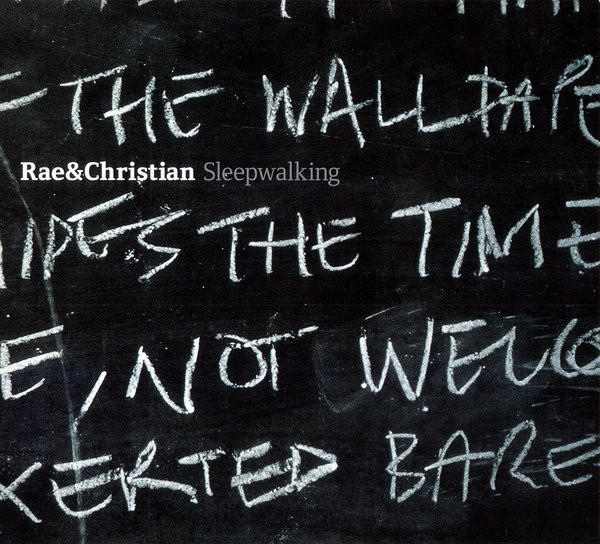 THE WALLPAPE
Rae&Christian Sleepwalking
THE TIME
E, NOT WELCO
XERTED BARE